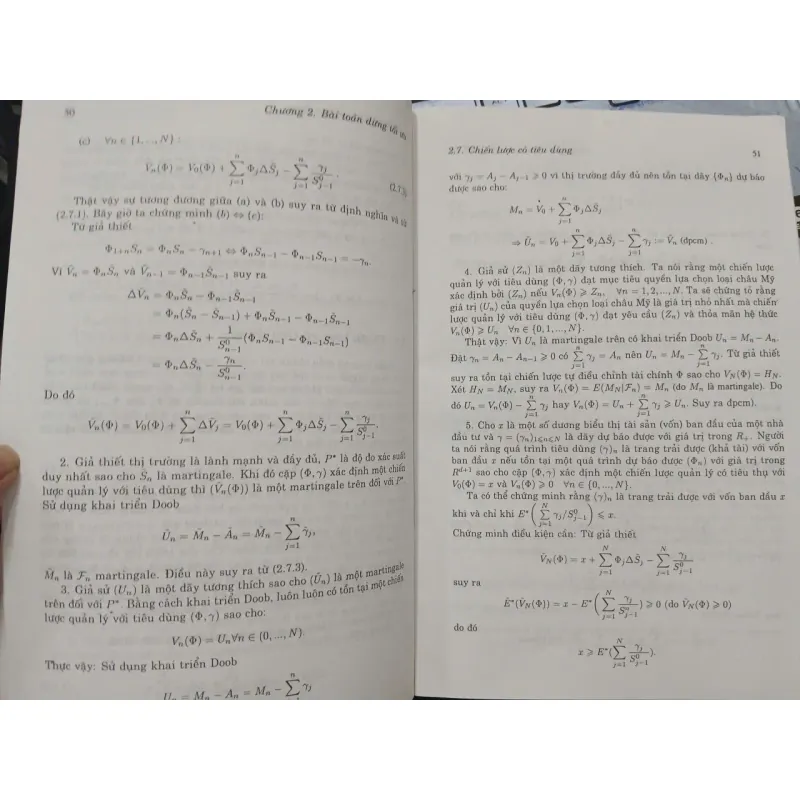 50
Chương 2. Bài toán dừng tối ưu
(c) ∀n ∈ {1, ..., N} :
Ṽₙ(Φ) = V₀(Φ) + ∑ⁿⱼ₌₁ ΦⱼΔS̃ⱼ − ∑ⁿⱼ₌₁ γⱼ/S⁰ⱼ₋₁ .
Thật vậy sự tương đương giữa (a) và (b) suy ra từ định nghĩa và từ
(2.7.1). Bây giờ ta chứng minh (b) ⇔ (c):
Từ giả thiết
Φ₁₊ₙSₙ = ΦₙSₙ − γₙ₊₁ ⇔ ΦₙSₙ₋₁ − Φₙ₋₁Sₙ₋₁ = −γₙ.
Vì Ṽₙ = ΦₙS̃ₙ và Ṽₙ₋₁ = Φₙ₋₁S̃ₙ₋₁ suy ra
ΔṼₙ = ΦₙS̃ₙ − Φₙ₋₁S̃ₙ₋₁
= Φₙ(S̃ₙ − S̃ₙ₋₁) + ΦₙS̃ₙ₋₁ − Φₙ₋₁S̃ₙ₋₁
= ΦₙΔS̃ₙ + 1/S⁰ₙ₋₁ (ΦₙSₙ₋₁ − Φₙ₋₁Sₙ₋₁)
= ΦₙΔS̃ₙ − γₙ/S⁰ₙ₋₁.
Do đó
Ṽₙ(Φ) = V₀(Φ) + ∑ⁿⱼ₌₁ ΔṼⱼ = V₀(Φ) + ∑ⁿⱼ₌₁ ΦⱼΔS̃ⱼ − ∑ⁿⱼ₌₁ γⱼ/S⁰ⱼ₋₁.
2. Giả thiết thị trường là lành mạnh và đầy đủ, P* là độ đo xác suất
duy nhất sao cho S̃ₙ là martingale. Khi đó cặp (Φ, γ) xác định một chiến
lược quản lý với tiêu dùng thì (Ṽₙ(Φ)) là một martingale trên đối với P*
Sử dụng khai triển Doob
Ũₙ = M̃ₙ − Ãₙ = M̃ₙ − ∑ⁿⱼ₌₁ γ̃ⱼ,
M̃ₙ là Fₙ martingale. Điều này suy ra từ (2.7.3).
3. Giả sử (Uₙ) là một dãy tương thích sao cho (Ũₙ) là một martingale
trên đối với P*. Bằng cách khai triển Doob, luôn luôn có tồn tại một chiến
lược quản lý với tiêu dùng (Φ, γ) sao cho:
Vₙ(Φ) = Uₙ∀n ∈ {0, ..., N}
Thực vậy: Sử dụng khai triển Doob
Uₙ = Mₙ − Aₙ = Mₙ − ∑ⁿ γⱼ
2.7. Chiến lược có tiêu dùng
51
với γⱼ = Aⱼ − Aⱼ₋₁ ⩾ 0 vì thị trường đầy đủ nên tồn tại dãy {Φₙ} dự báo
được sao cho:
Mₙ = V₀ + ∑ⁿⱼ₌₁ ΦⱼΔS̃ⱼ
⇒ Ũₙ = V₀ + ∑ⁿⱼ₌₁ ΦⱼΔS̃ⱼ − ∑ⁿⱼ₌₁ γⱼ := Ṽₙ (đpcm) .
4. Giả sử (Zₙ) là một dãy tương thích. Ta nói rằng một chiến lược
quản lý với tiêu dùng (Φ, γ) đạt mục tiêu quyền lựa chọn loại châu Mỹ
xác định bởi (Zₙ) nếu Vₙ(Φ) ⩾ Zₙ, ∀n = 1, 2, ..., N. Ta sẽ chứng tỏ rằng
giá trị (Uₙ) của quyền lựa chọn loại châu Mỹ là giá trị nhỏ nhất mà chiến
lược quản lý với tiêu dùng (Φ, γ) đạt yêu cầu (Zₙ) và thỏa mãn hệ thức
Vₙ(Φ) ⩾ Uₙ ∀n ∈ {0, 1, ..., N}.
Thật vậy: Vì Uₙ là martingale trên có khai triển Doob Uₙ = Mₙ − Aₙ.
Đặt γₙ = Aₙ − Aₙ₋₁ ⩾ 0 có ∑ⁿⱼ₌₁ γⱼ = Aₙ nên Uₙ = Mₙ − ∑ⁿⱼ₌₁ γⱼ. Từ giả thiết
suy ra tồn tại chiến lược tự điều chỉnh tài chính Φ sao cho V_N(Φ) = H_N.
Xét H_N = M_N, suy ra Vₙ(Φ) = E(M_N|Fₙ) = Mₙ (do Mₙ là martingale). Do
đó Uₙ = Vₙ(Φ) − ∑ⁿⱼ₌₁ γⱼ hay Vₙ(Φ) = Uₙ + ∑ⁿⱼ₌₁ γⱼ ⩾ Uₙ. Suy ra đpcm).
5. Cho x là một số dương biểu thị tài sản (vốn) ban đầu của một nhà
đầu tư và γ = (γₙ)₁⩽ₙ⩽_N là dãy dự báo được với giá trị trong R₊. Người
ta nói rằng quá trình tiêu dùng (γ)ₙ là trang trải được (khả tài) với vốn
ban đầu x nếu tồn tại một quá trình dự báo được (Φₙ) với giá trị trong
Rᵈ⁺¹ sao cho cặp (Φ, γ) xác định một chiến lược quản lý có tiêu thụ với
V₀(Φ) = x và Vₙ(Φ) ⩾ 0 ∀n ∈ {0, ..., N}.
Ta có thể chứng minh rằng (γ)ₙ là trang trải được với vốn ban đầu x
khi và chỉ khi E*(∑ᴺⱼ₌₁ γⱼ/S⁰ⱼ₋₁) ⩽ x.
Chứng minh điều kiện cần: Từ giả thiết
Ṽ_N(Φ) = x + ∑ᴺⱼ₌₁ ΦⱼΔS̃ⱼ − ∑ᴺⱼ₌₁ γⱼ/S⁰ⱼ₋₁
suy ra
Ẽ*(Ṽ_N(Φ)) = x − E*(∑ᴺⱼ₌₁ γⱼ/S⁰ⱼ₋₁) ⩾ 0 (do Ṽ_N(Φ) ⩾ 0)
do đó
x ⩾ E*(∑ᴺⱼ₌₁ γⱼ/S⁰ⱼ₋₁).